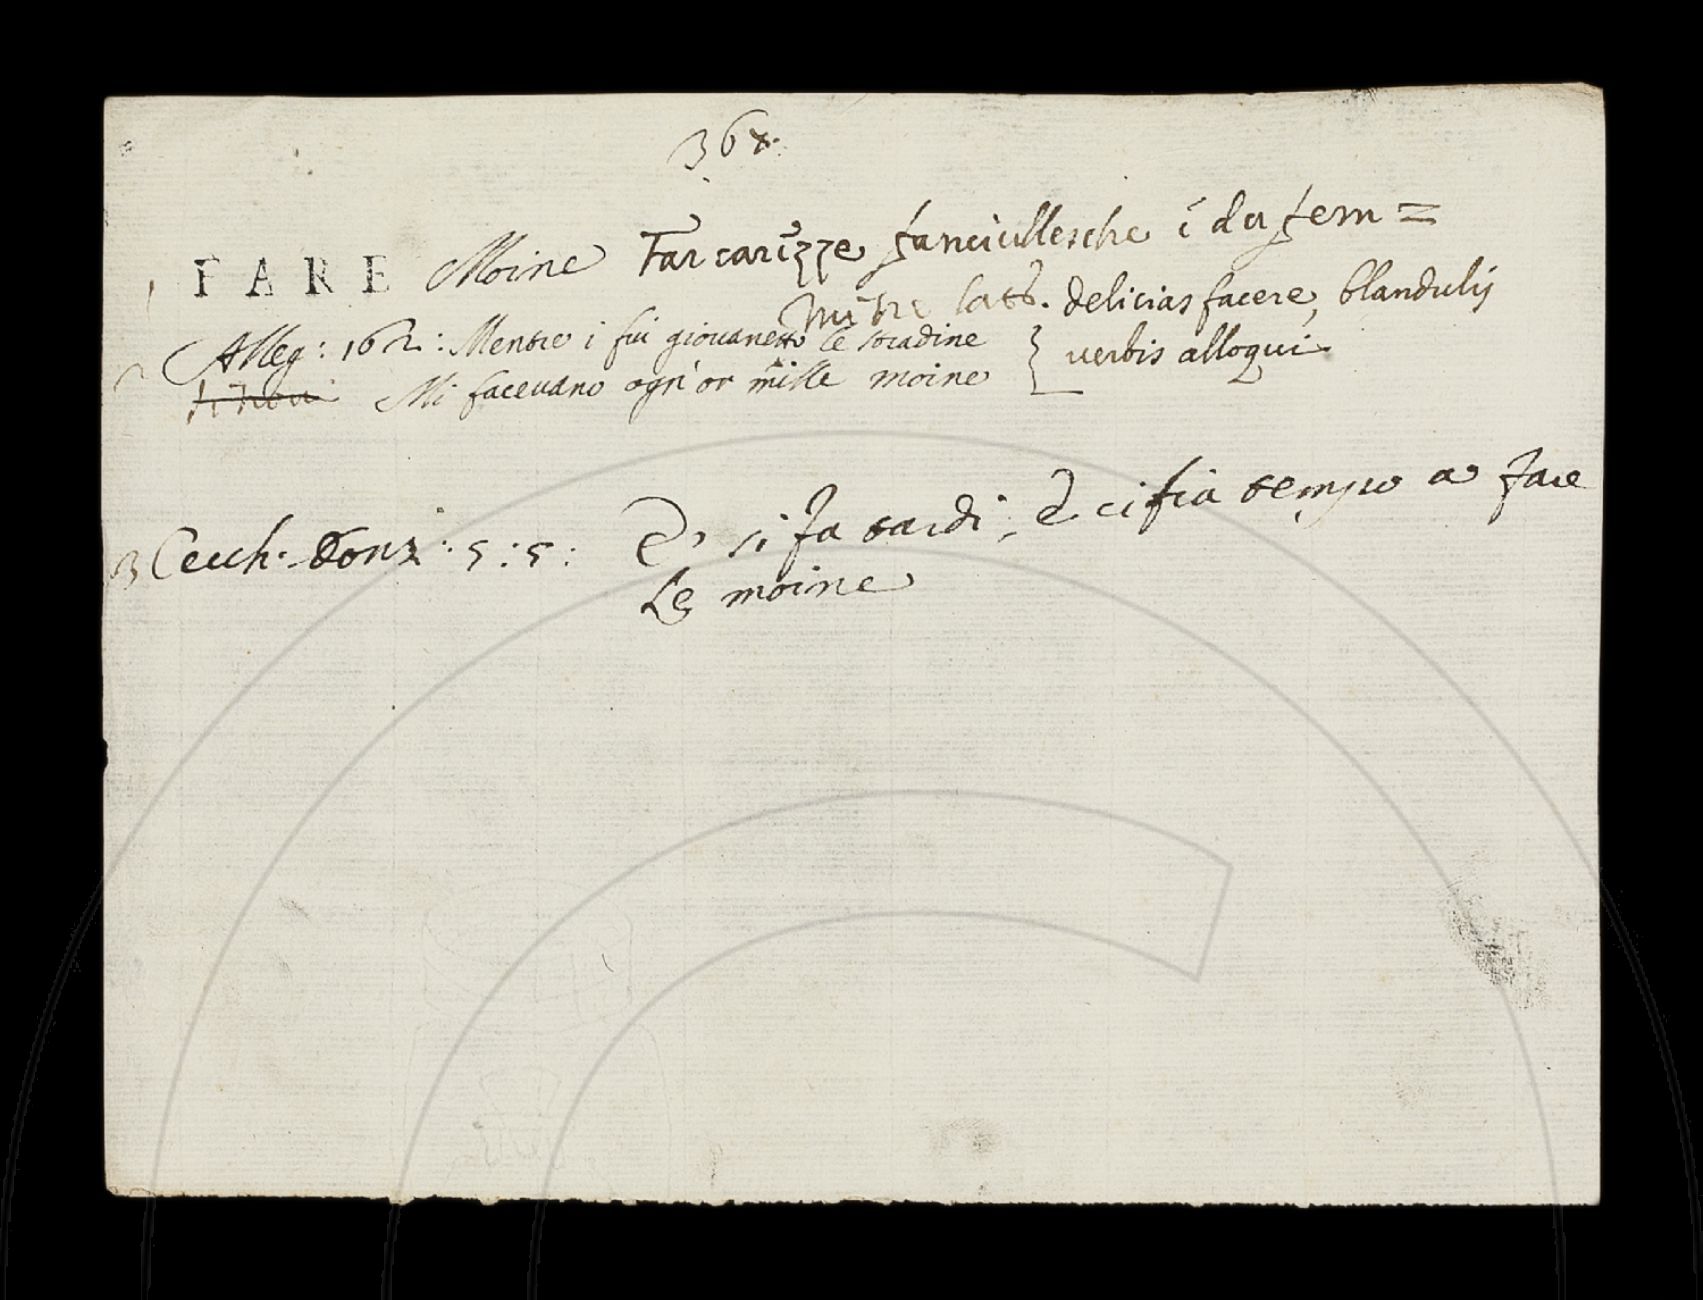 368.
FARE Moine Far carezze fanciullesche è da fem=
mine latt. delicias facere, blandulis
Alleg: 162: Mentre i fui giovanetto le
Mi facevano ogn'or mille moine } verbis alloqui.
3 Cecch. Donz: 5:5: E' si fa tardi, e ci fia tempo a fare
Le moine